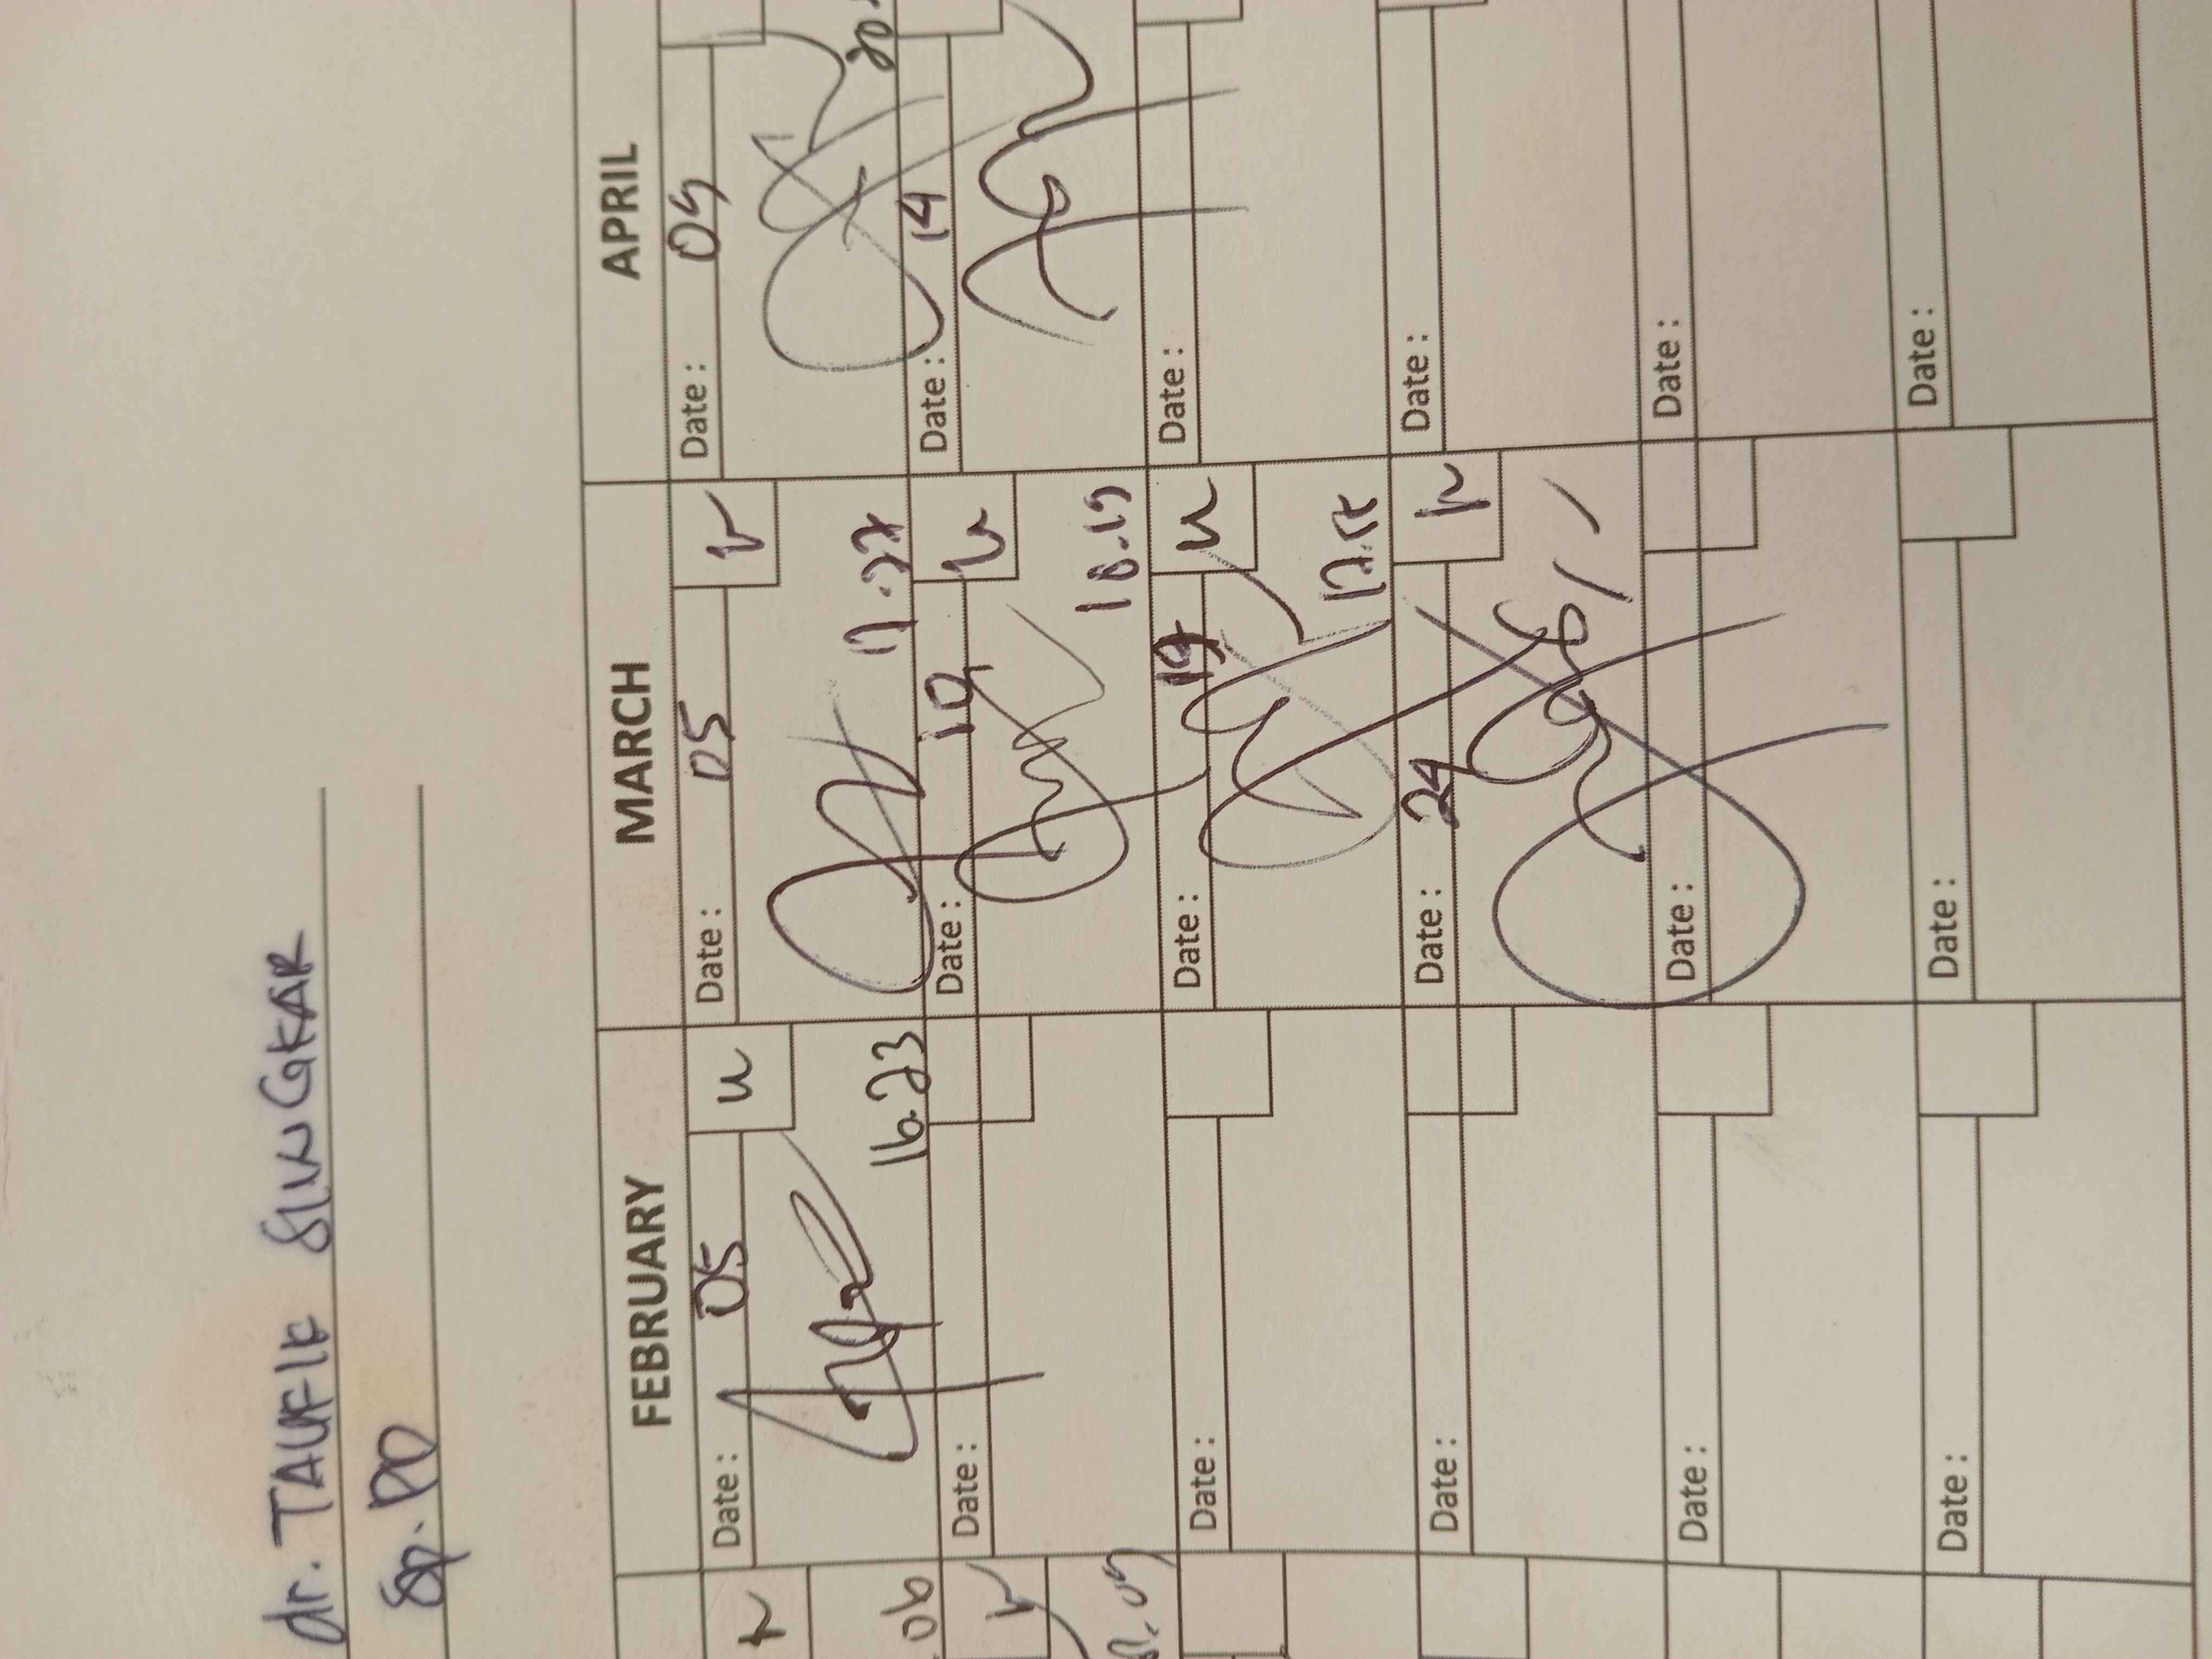 dr. TAUFIK SINGKAR
Sp. PD
FEBRUARY MARCH APRIL
Date: 05 Date: 05 Date: 09
06 16.23 17.27 20.
Date: Date: 10 Date: 14
18.19
Date: Date: 19 Date:
Date: Date: 24 Date:
Date: Date: Date:
Date: Date: Date: